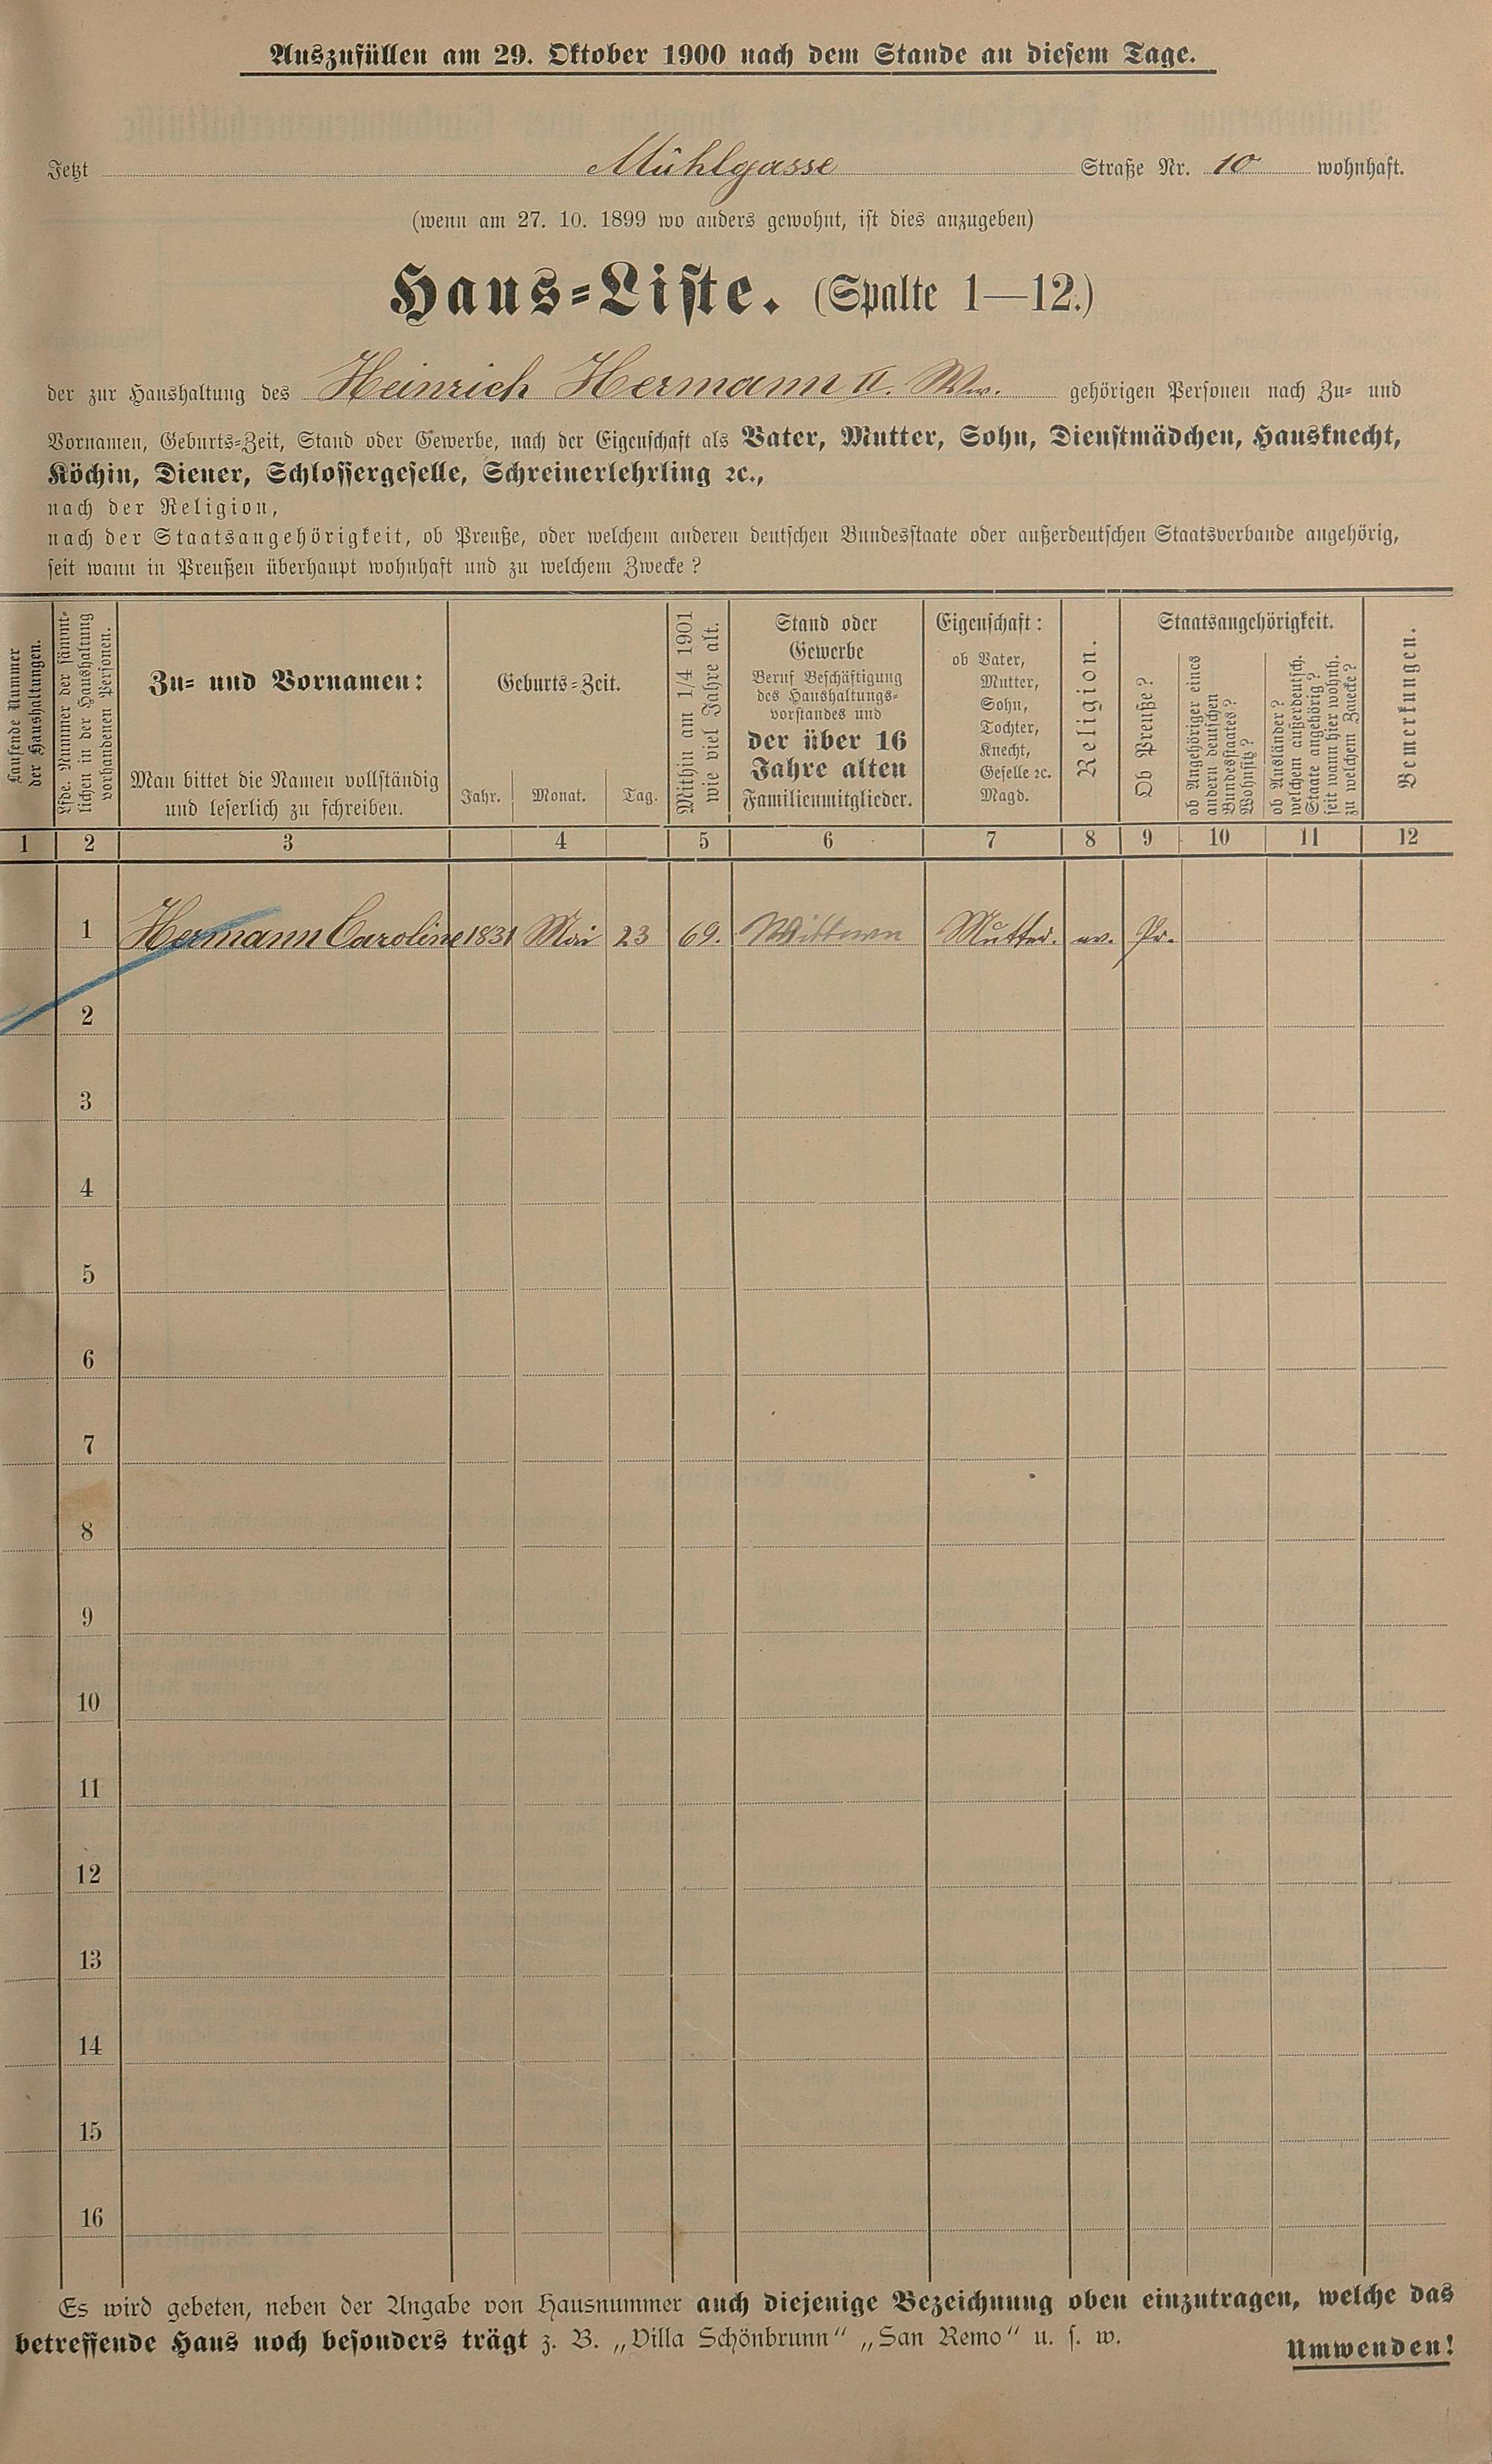 Auszufüllen am 29. Oktober 1900 nach dem Stande an diesem Tage.
Jetzt Mühlgasse Straße Nr. 10 wohnhaft.
(wenn am 27. 10. 1899 wo anders gewohnt, ist dies anzugeben)
Haus=Liste. (Spalte 1—12.)
der zur Haushaltung des Heinrich Hermann II. Ww. gehörigen Personen nach Zu= und
Vornamen, Geburts=Zeit, Stand oder Gewerbe, nach der Eigenschaft als Vater, Mutter, Sohn, Dienstmädchen, Hausknecht,
Köchin, Diener, Schlossergeselle, Schreinerlehrling ꝛc.,
nach der Religion,
nach der Staatsangehörigkeit, ob Preuße, oder welchem anderen deutschen Bundesstaate oder außerdeutschen Staatsverbande angehörig,
seit wann in Preußen überhaupt wohnhaft und zu welchem Zwecke?
Laufende Nummer
der Haushaltungen.
Lfde. Nummer der sämmt=
lichen in der Haushaltung
vorhandenen Personen.
Zu= und Vornamen:
Man bittet die Namen vollständig
und leserlich zu schreiben.
Geburts=Zeit.
Jahr. Monat. Tag.
Mithin am 1/4 1901
wie viel Jahre alt.
Stand oder
Gewerbe
Beruf Beschäftigung
des Haushaltungs=
vorstandes und
der über 16
Jahre alten
Familienmitglieder.
Eigenschaft:
ob Vater,
Mutter,
Sohn,
Tochter,
Knecht,
Geselle ꝛc.
Magd.
Religion.
Staatsangehörigkeit.
Ob Preuße?
ob Angehöriger eines
andern deutschen
Bundesstaates?
Wohnsitz?
ob Ausländer?
welchem außerdeutsch.
Staate angehörig?
seit wann hier wohnh.
zu welchem Zwecke?
Bemerkungen.
1 2 3 4 5 6 7 8 9 10 11 12
1 Hermann Caroline 1831 Mai 23 69. Wittwe Mutter. ev. Pr.
2
3
4
5
6
7
8
9
10
11
12
13
14
15
16
Es wird gebeten, neben der Angabe von Hausnummer auch diejenige Bezeichnung oben einzutragen, welche das
betreffende Haus noch besonders trägt z. B. „Villa Schönbrunn“ „San Remo“ u. s. w.
Umwenden!